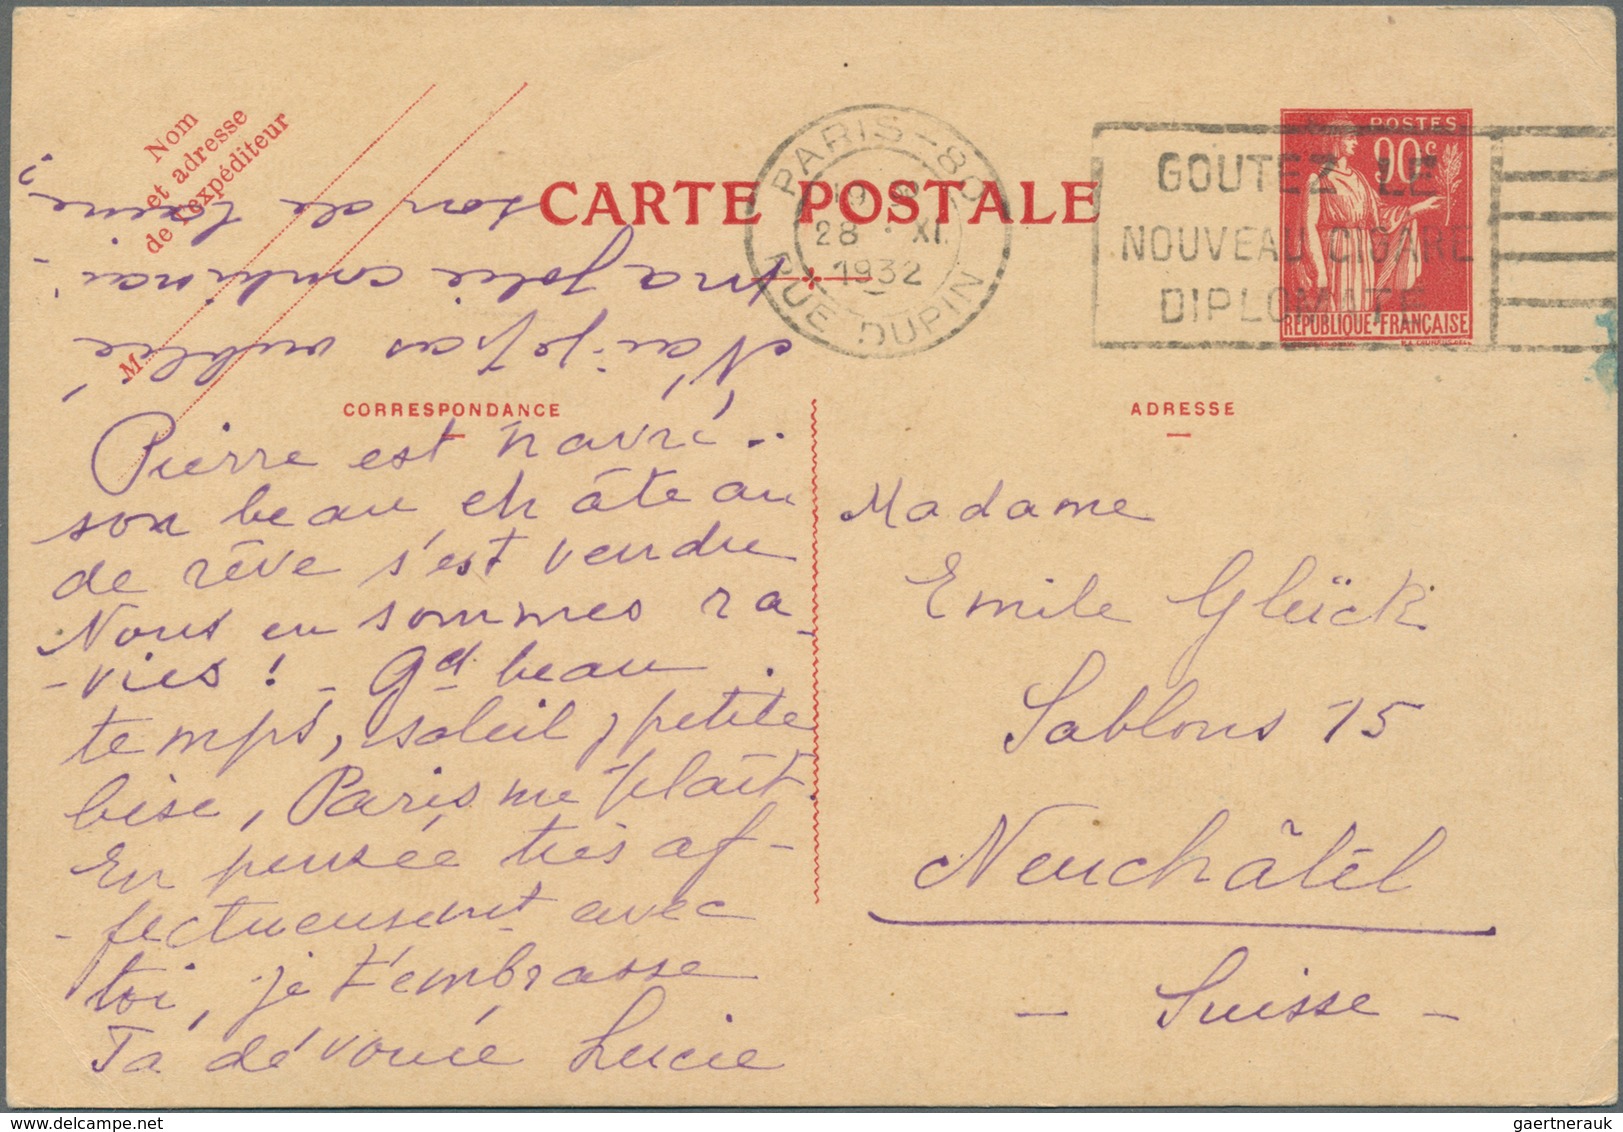 Nom
et adresse
de l'expéditeur
M
CARTE POSTALE
PARIS-80
19
28 · XI.
1932
RUE DUPIN
GOUTEZ LE
NOUVEAU CIGARE
DIPLOMATE
POSTES
90c
REPUBLIQUE·FRANÇAISE
CORRESPONDANCE
Pierre est navré..
son beau château
de rêve s'est vendu
Nous en sommes ra-
-vies! - Gd beau
temps, soleil, petite
bise, Paris me plaît.
En pensée très af-
-fectueusement avec
toi, je t'embrasse
Ta dévouée Lucie
N'ai-je pas oublié
ma jolie combinai-
son de laine?
ADRESSE
Madame
Emile Glück
Sablons 15
Neuchâtel
- Suisse -
gaertnerauk